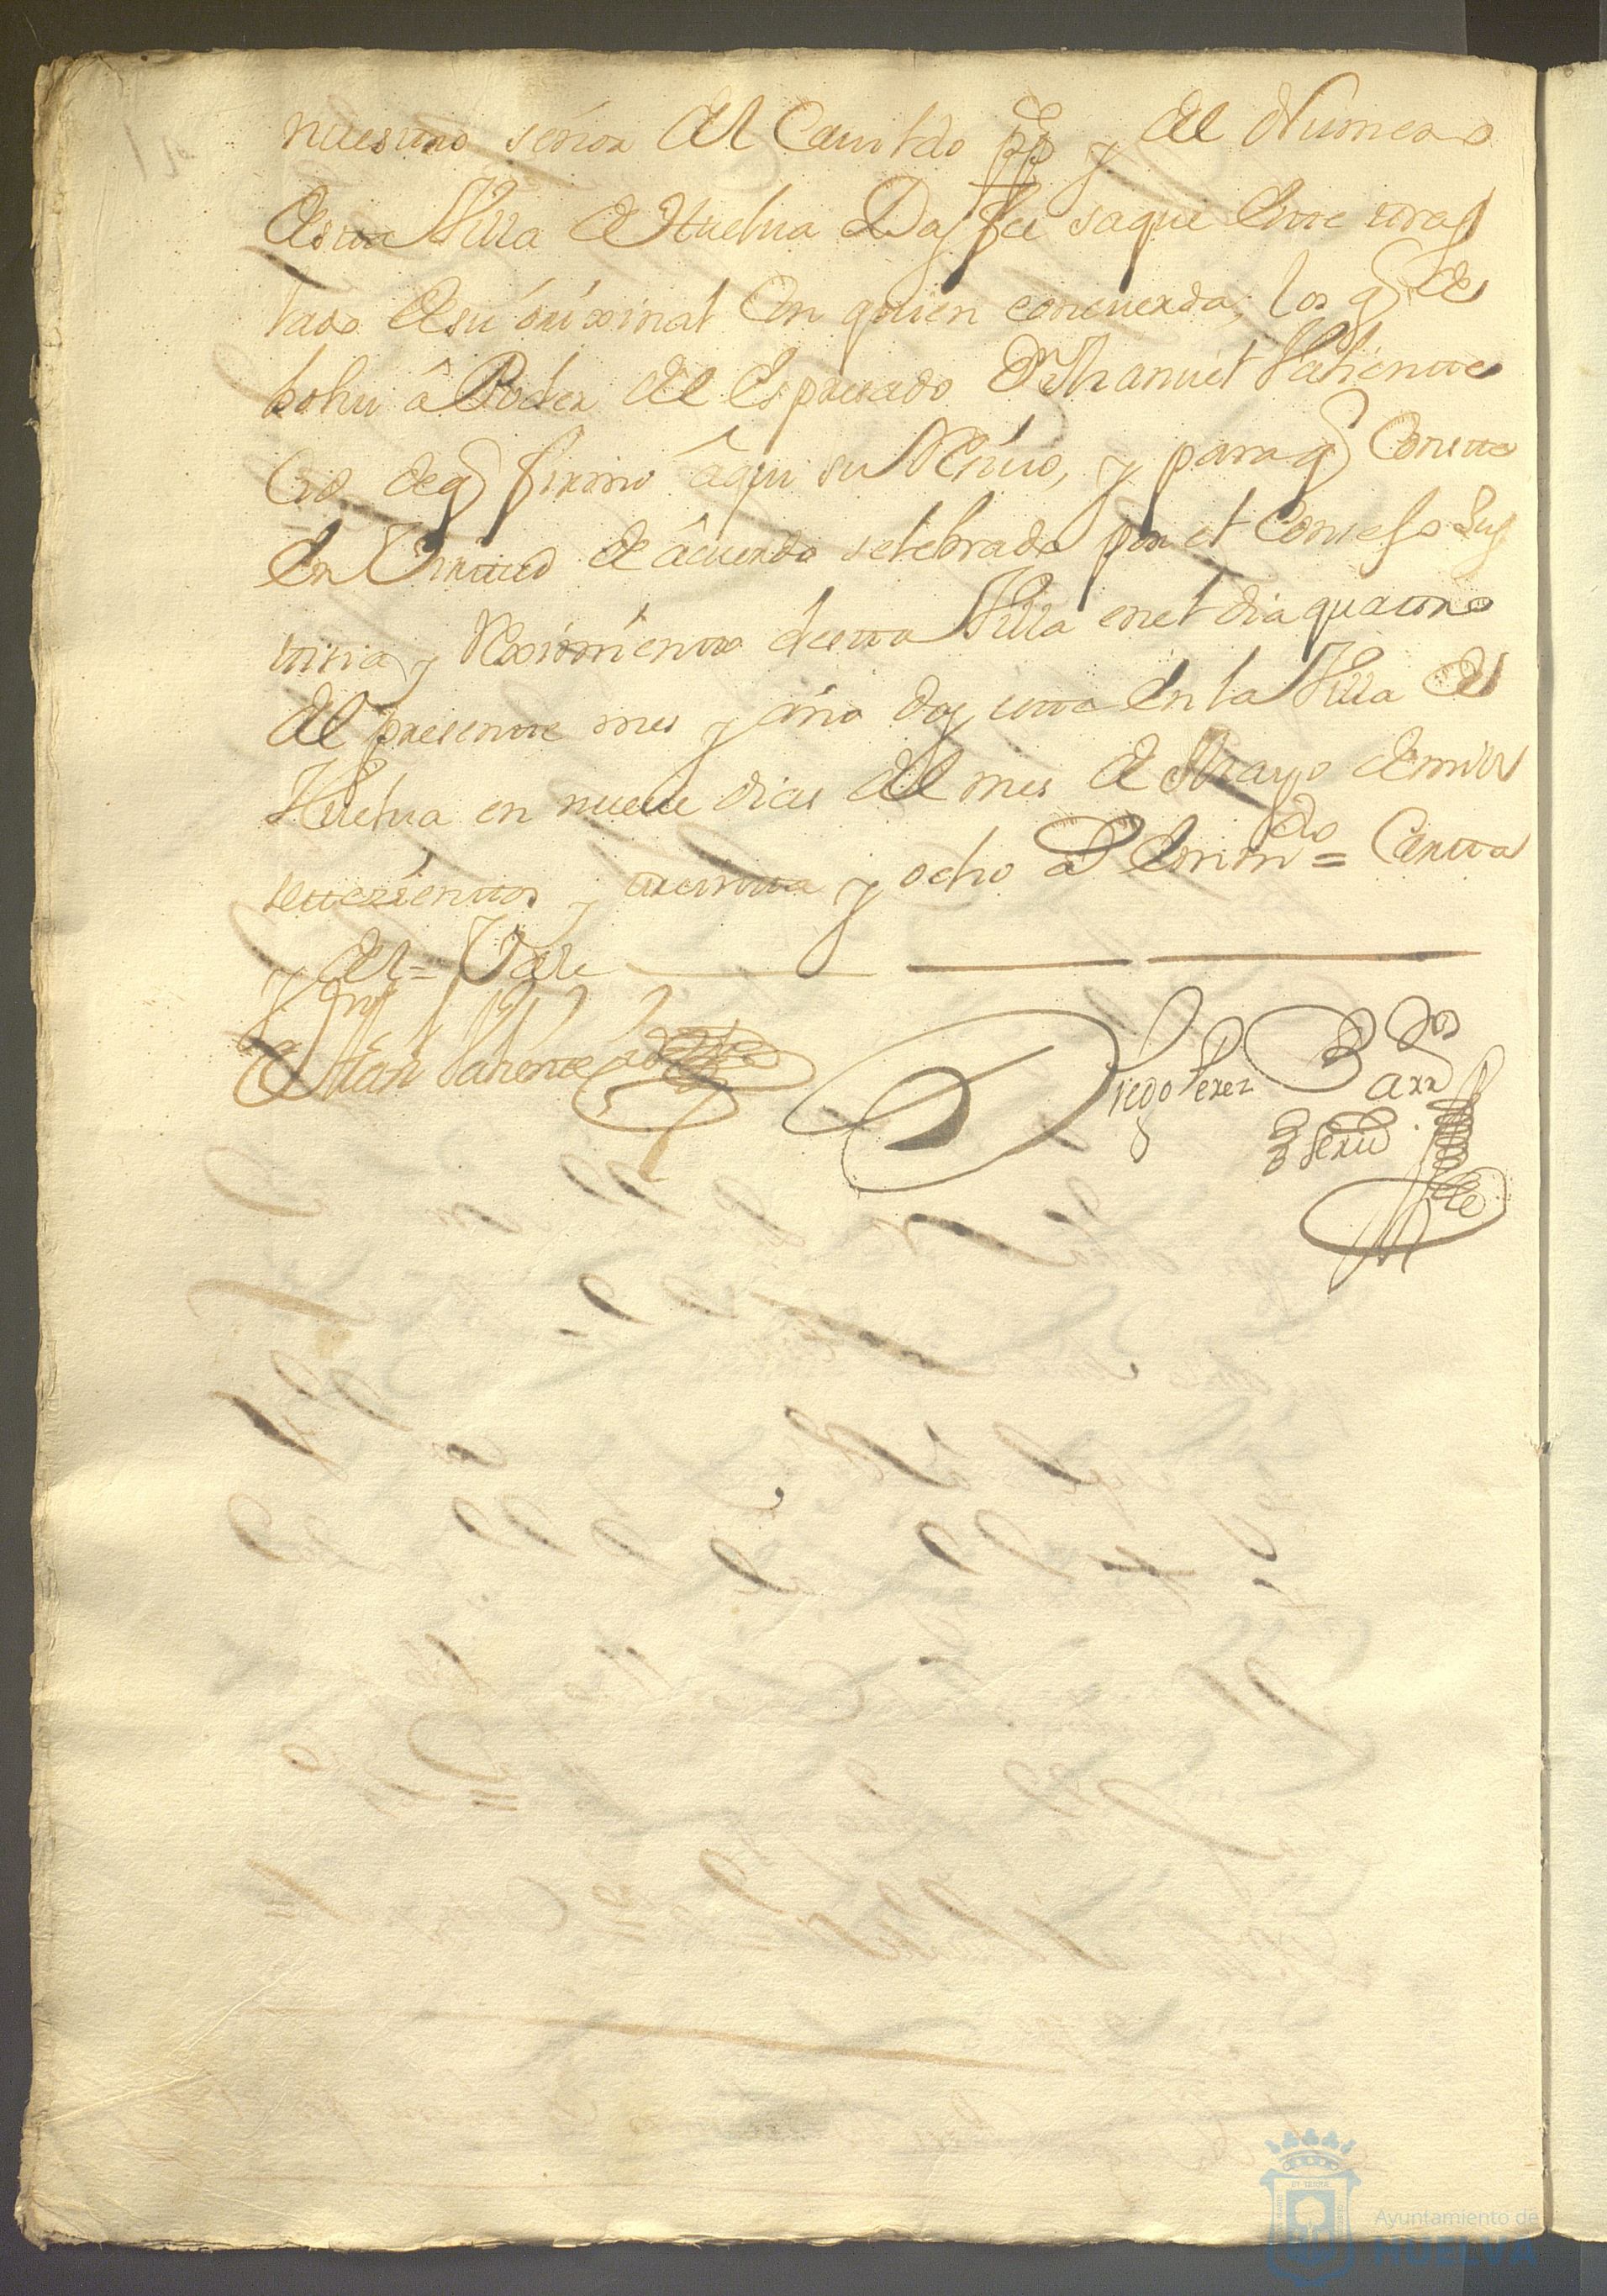 nuestro señor del Cauildo pp.co y del Numero
desta Villa de Huelua Doy fee saque este tras
lado de su órixinal Con quien concuerda, los q de
bolui â Poder del Espresado Dn Manuel Valiente
Cid deq firmo âqui su Reciuo, y para q Conste
En Virtud de âcuerdo selebrado por el Consejo Jus
ticia y Reximiento desta Villa enel dia quatro
del presente mes y año doy este En la Villa de
Huelua en nueue dias del mes de Mayo de mill
setesientos y treinta y ocho a.s Enmdo = Carta
y del = Vale
Dn Man Valiente Cid
Diego Perez Barr.dos
esscriu.
Ayuntamiento de
HUELVA